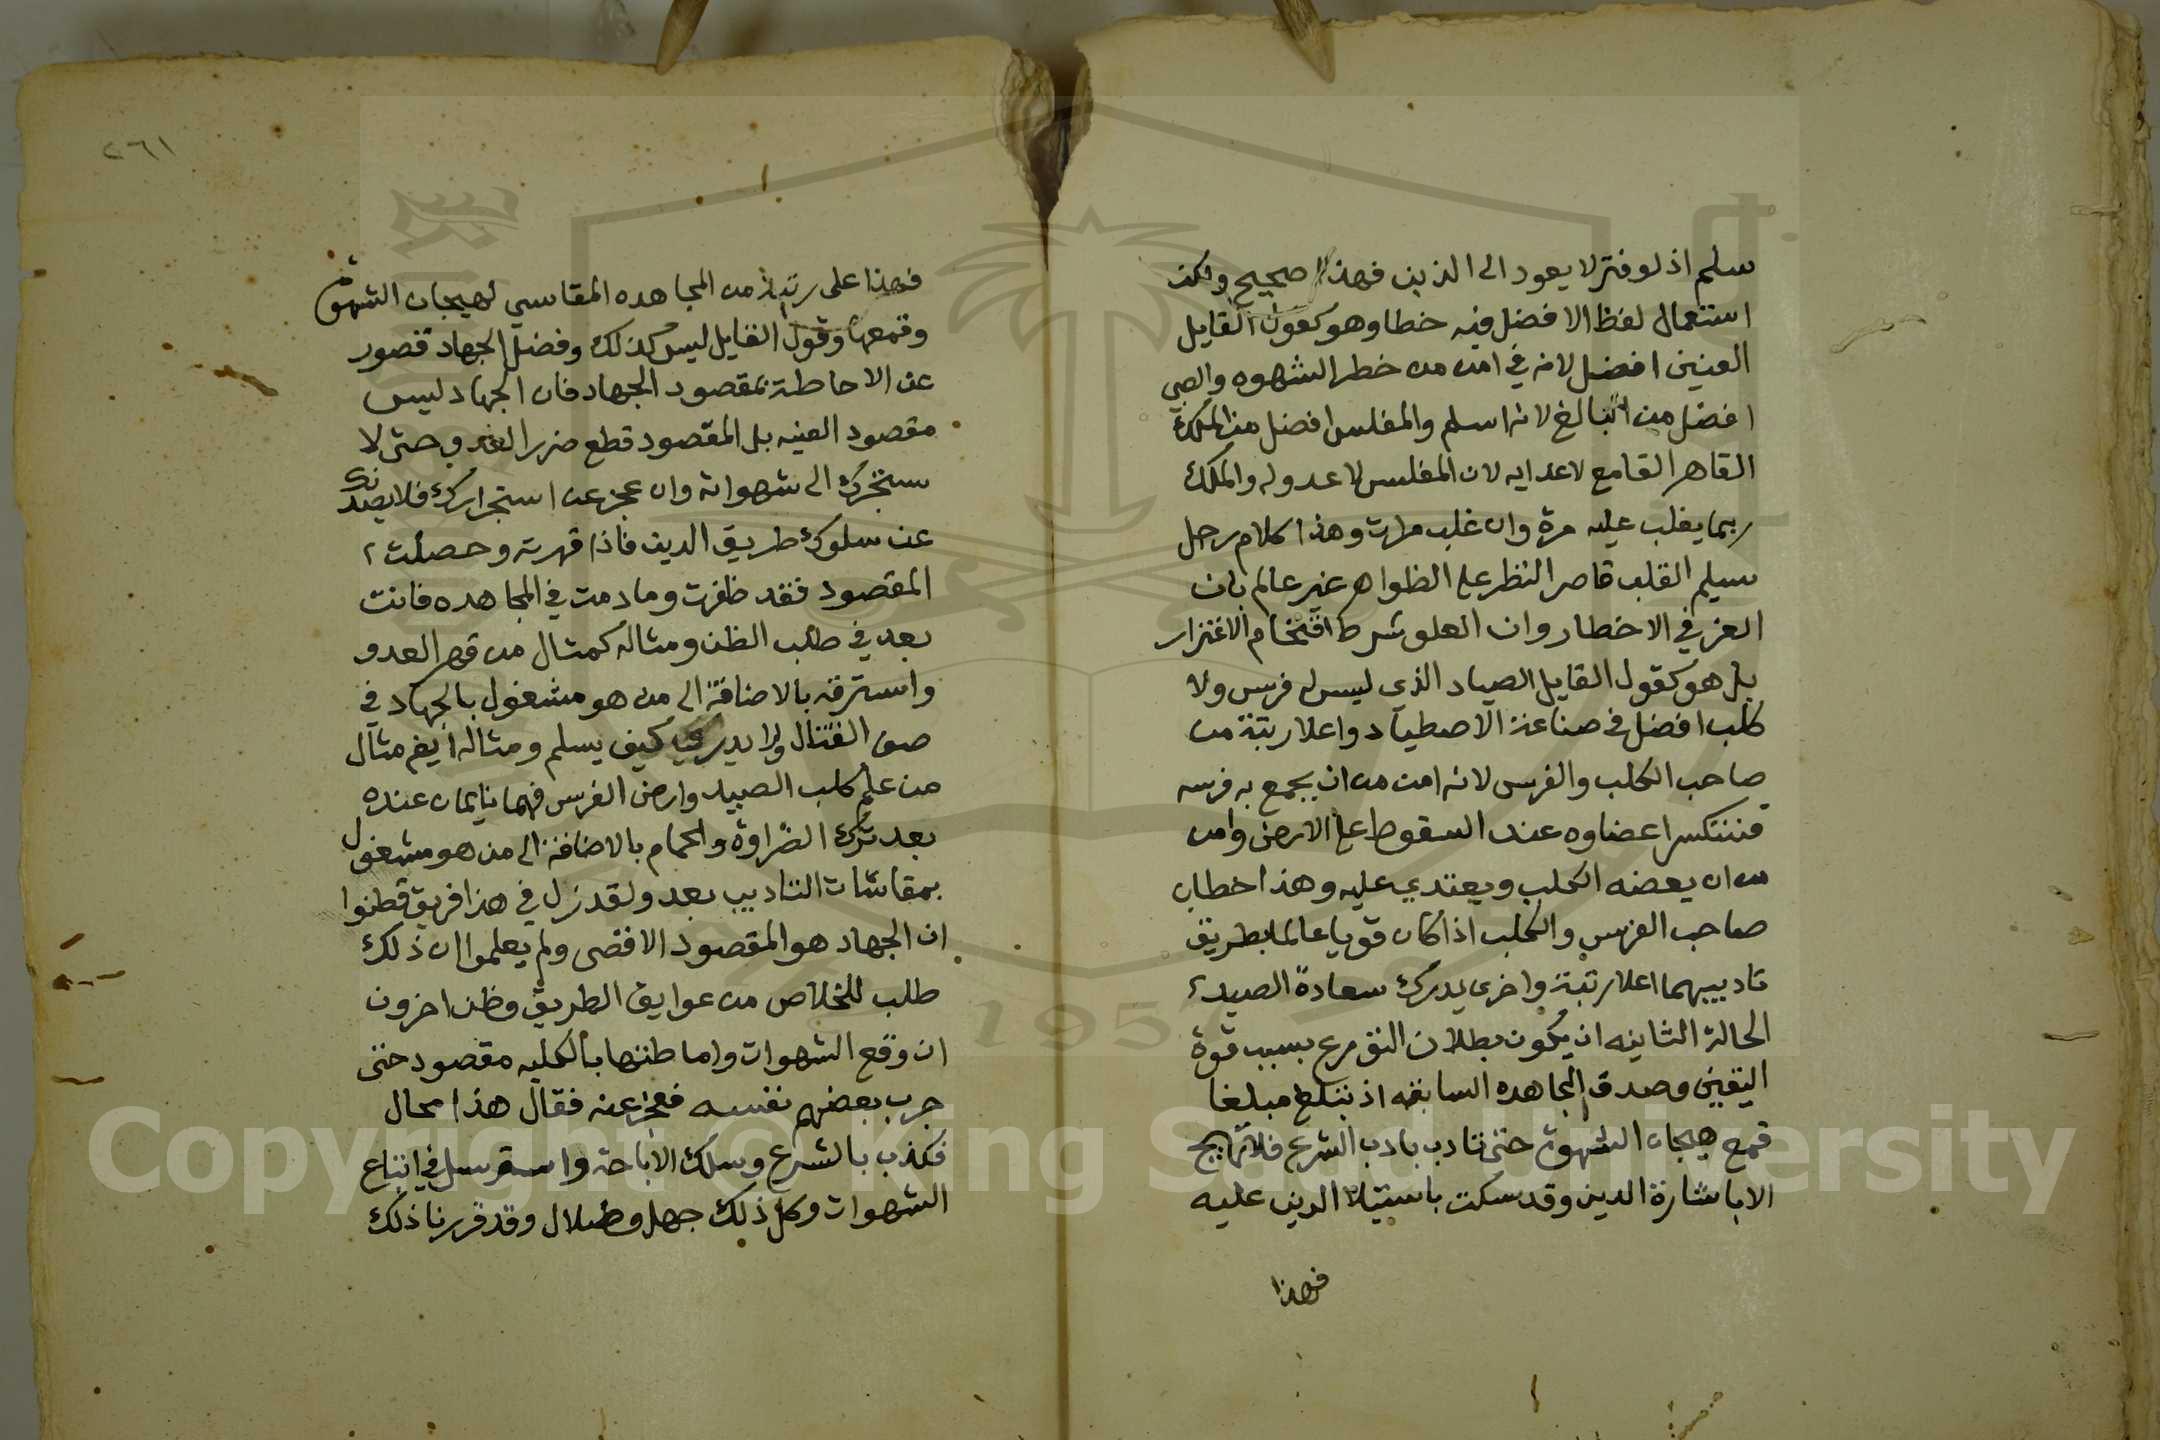 سلم اذ لو فتر لا يعود الى الذنب فهذا صحيح ولكن
استعمال لفظ الافضل فيه خطا وهو كقول القايل
العنين افضل لانه في امن من خطر الشهوه والصبي
افضل من البالغ لانه اسلم والمفلس افضل من الملك
القاهر القامع لاعدايه لان المفلس لا عدو له والملك
ربما يغلب عليه مرة وان غلب مرات وهذا كلام رجل
سليم القلب قاصر النظر على الظواهر غير عالم بان
العز في الاخطار وان العلو شرط اقتحام الاغترار
بل هو كقول القايل الصياد الذي ليس له فرس ولا
كلب افضل في صناعة الاصطياد واعلا رتبة من
صاحب الكلب والفرس لانه امن من ان يجمح به فرسه
فتنكسر اعضاوه عند السقوط على الارض وامن
من ان يعضه الكلب ويعتدي عليه وهذا خطا بل
صاحب الفرس والكلب اذا كان قويا عالما بطريق
تاديبهما اعلا رتبة واخرى يدرك سعادة الصيد
الحالة الثانيه ان يكون بطلان النزوع بسبب قوة
اليقين وصدق المجاهده السابقه اذ بلغ مبلغا
قمع هيجان الشهوة حتى تادب بادب الشرع فلا تهيج
الا باشارة الدين وقد سكنت باستيلا الدين عليه
فهذا
٢٦١
فهذا على رتبة من المجاهده المقاسي لهيجان الشهوة
وقمعها وقول القايل ليس كذلك وفضل الجهاد قصور
عن الاحاطة بمقصود الجهاد فان الجهاد ليس
مقصود العينه بل المقصود قطع ضرر العدو حتى لا
يستجرك الى شهواته وان عجز عن استجرارك فلا يصدنك
عن سلوك طريق الدين فاذا قهرته وحصلت
المقصود فقد ظفرت وما دمت في المجاهده فانت
بعد في طلب الظفر ومثاله كمثال من قهر العدو
واسترقه بالاضافة الى من هو مشغول بالجهاد في
صف القتال ولا يدري كيف يسلم ومثاله ايضا مثال
من علم كلب الصيد وارض الفرس فهما نايمان عنده
بعد ترك الضراوة والجمام بالاضافة الى من هو مشغول
بمقاساة التاديب بعد ولقد نزل في هذا فريق فظنوا
ان الجهاد هو المقصود الاقصى ولم يعلموا ان ذلك
طلب للخلاص من عوايق الطريق وظن اخرون
ان قمع الشهوات واماطتها بالكليه مقصود حتى
جرب بعضهم نفسه فعجز عنه فقال هذا محال
فكذب بالشرع وسلك الاباحة واسترسل في اتباع
الشهوات وكل ذلك جهل وضلال وقد قررنا ذلك
Copyright © King Saud University
1957